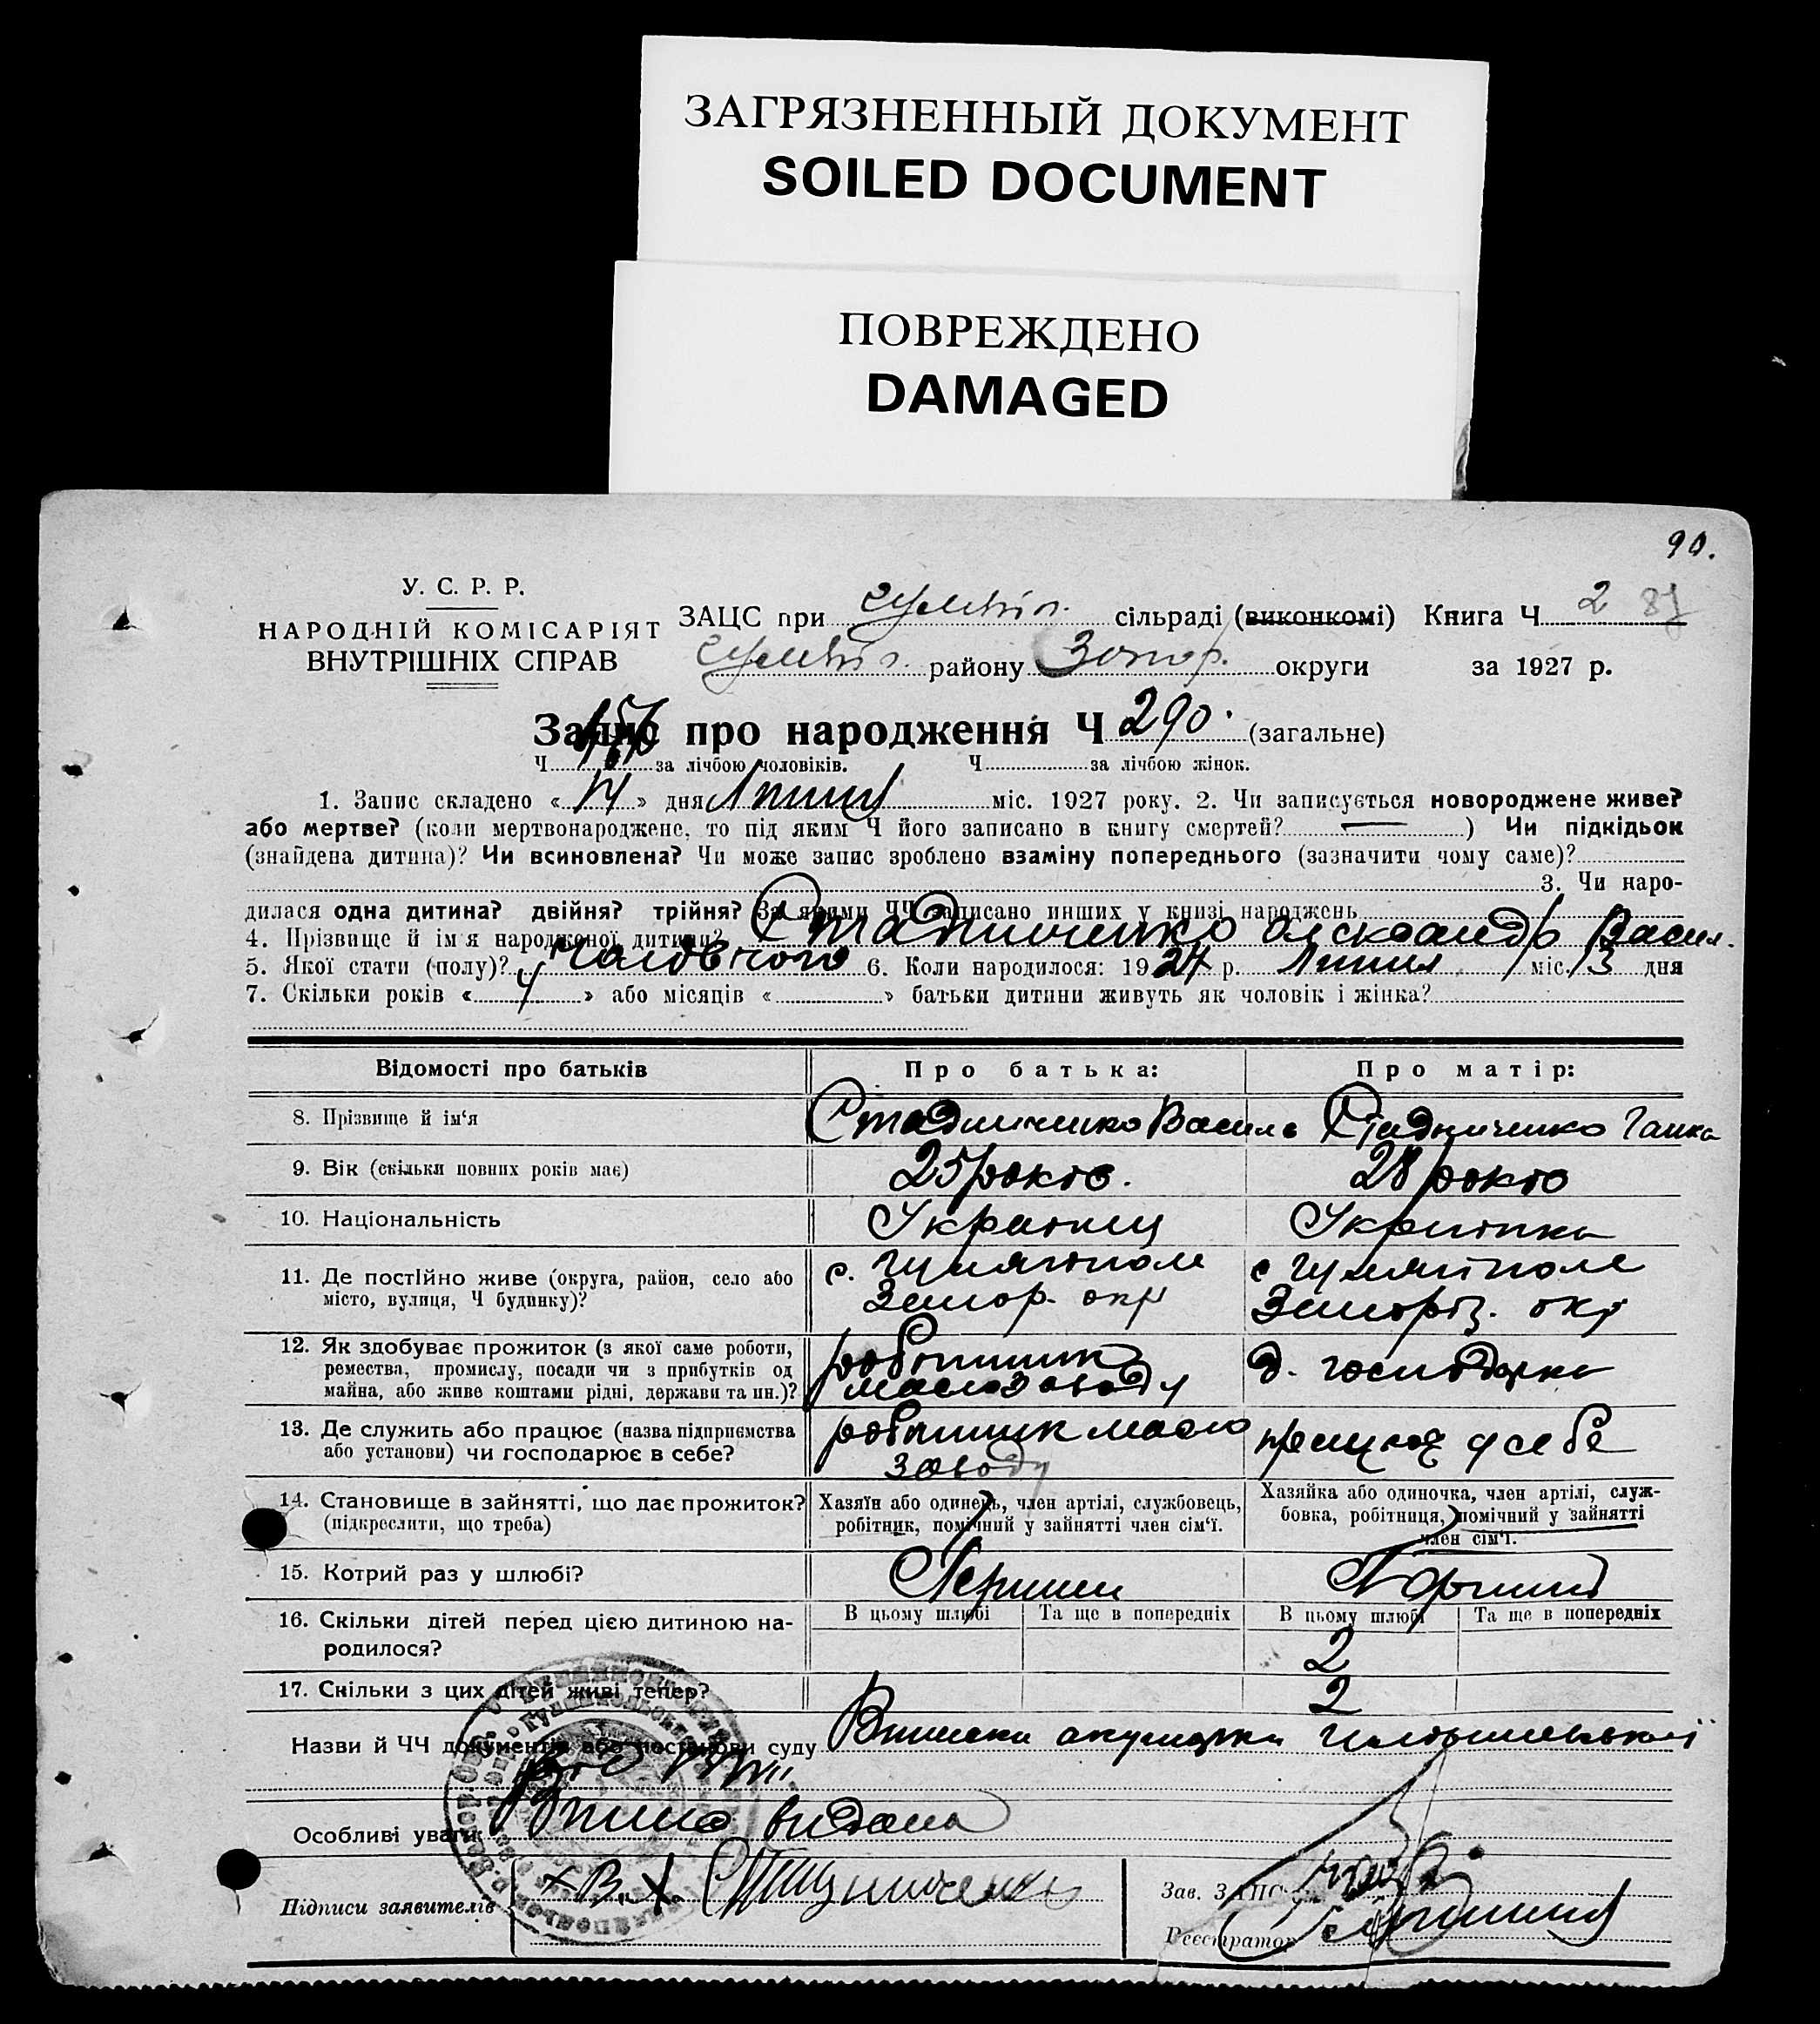 ЗАГРЯЗНЕННЫЙ ДОКУМЕНТ
SOILED DOCUMENT
ПОВРЕЖДЕНО
DAMAGED
90.
У. С. Р. Р.
НАРОДНІЙ КОМІСАРІЯТ
ВНУТРІШНІХ СПРАВ
ЗАЦС при сільраді (виконкомі) Книга Ч 2
району Запор. округи за 1927 р.
Запис про народження Ч 290. (загальне)
Ч за лічбою чоловіків. Ч за лічбою жінок.
1. Запис складено « » дня Липня міс. 1927 року. 2. Чи записується новороджене живе?
або мертве? (коли мертвонароджене, то під яким Ч його записано в книгу смертей? — ) Чи підкідьок
(знайдена дитина)? Чи всиновлена? Чи може запис зроблено взаміну попереднього (зазначити чому саме)?
3. Чи наро-
дилася одна дитина? двійня? трійня? За якими ЧЧ записано инших у книзі народжень
4. Прізвище й ім'я народженої дитини? Стадниченко Олександр Васил.
5. Якої стати (полу)? 6. Коли народилося: 1927 р. Липня міс. 13 дня
7. Скільки років « 4 » або місяців « » батьки дитини живуть як чоловік і жінка?
Відомості про батьків
Про батька:
Про матір:
8. Прізвище й ім'я
Стадниченко Василь
Стадниченко Ганна
9. Вік (скільки повних років має)
25 років.
28 років
10. Національність
Українец
Українка
11. Де постійно живе (округа, район, село або
місто, вулиця, Ч будинку)?
с. Гуляйполе
Запор. окр
с Гуляйполе
Запоріз. окр
12. Як здобуває прожиток (з якої саме роботи,
ремества, промислу, посади чи з прибутків од
майна, або живе коштами рідні, держави та ин.)?
робітник
маслозаводу
д. господарка
13. Де служить або працює (назва підприємства
або установи) чи господарює в себе?
робітник масло
заводу
працює у себе
14. Становище в зайнятті, що дає прожиток?
(підкреслити, що треба)
Хазяїн або одинець, член артілі, службовець,
робітник, помічний у зайнятті член сім'ї.
Хазяйка або одиночка, член артілі, служ-
бовка, робітниця, помічний у зайнятті
член сім'ї.
15. Котрий раз у шлюбі?
Перший
Перший
16. Скільки дітей перед цією дитиною на-
родилося?
В цьому шлюбі Та ще в попередніх
В цьому шлюбі Та ще в попередніх
2
17. Скільки з цих дітей живі тепер?
2
Назви й ЧЧ документів або постанови суду Виписка акушерки
Особливі уваги: видана
Підписи заявителів
Зав. ЗАЦС
Реєстратор